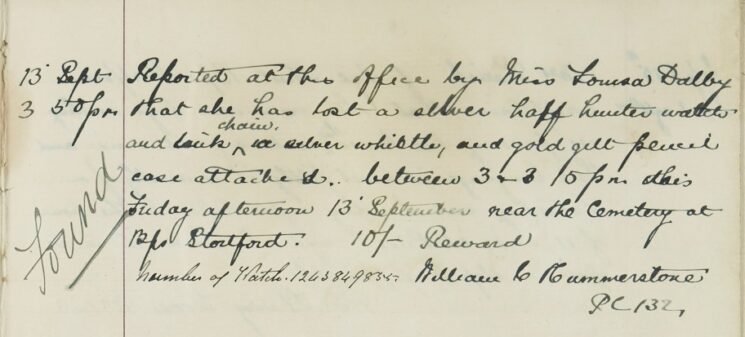 13 Sept Reported at this Office by Miss Louisa Dalby
3 50pm that she has lost a silver half hunter watch
chain.
and link ^ a silver whistle, and gold gilt pencil
case attached.. between 3 & 3 15pm this
Friday afternoon 13 September near the Cemetery at
Bps Stortford. 10/- Reward
Number of Watch. William C Hummerstone
PC 132,
Found